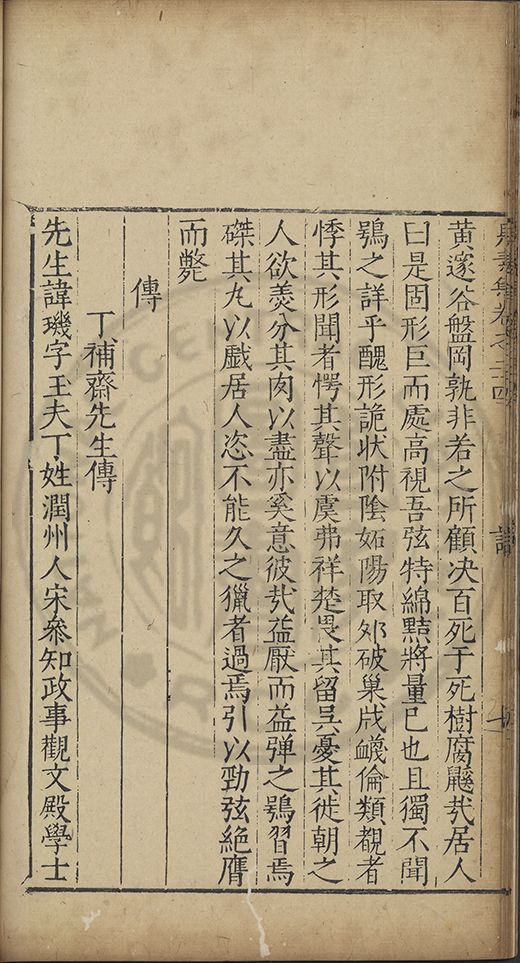 黃邃谷盤岡孰非若之所顧决百死于死樹腐鼷㢤居人
曰是固形巨而處高視吾弦特綿㸃將量已也且獨不聞
鴞之詳乎醜形詭狀附陰妬陽取夘破巢戕衊倫類覩者
悸其形聞者愕其聲以虞弗祥楚畏其留吳憂其徙朝之
人欲羙分其肉以盡亦奚意彼㢤益厭而益弹之鴞習焉
磔其九以戱居人恣不能久之獵者過焉引以勁弦絶膺
而斃
傳
丁補齋先生傳
先生諱璣字玉夫丁姓潤州人宋叅知政事觀文殿學士